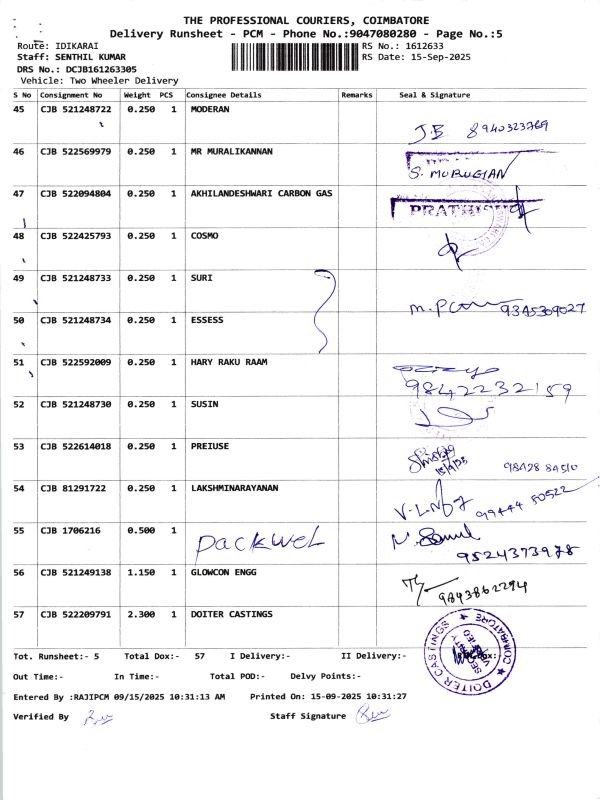 THE PROFESSIONAL COURIERS, COIMBATORE
Delivery Runsheet - PCM - Phone No.:9047080280 - Page No.:5
Route: IDIKARAI RS No.: 1612633
Staff: SENTHIL KUMAR RS Date: 15-Sep-2025
DRS No.: DCJB161263305
Vehicle: Two Wheeler Delivery
S No Consignment No Weight PCS Consignee Details Remarks Seal & Signature
45 CJB 521248722 0.250 1 MODERAN
J.B 8940323769
46 CJB 522569979 0.250 1 MR MURALIKANNAN
S. MURUGIAN
47 CJB 522094804 0.250 1 AKHILANDESHWARI CARBON GAS
48 CJB 522425793 0.250 1 COSMO
49 CJB 521248733 0.250 1 SURI
9345309027
50 CJB 521248734 0.250 1 ESSESS
51 CJB 522592009 0.250 1 HARY RAKU RAAM
9842232159
52 CJB 521248730 0.250 1 SUSIN
53 CJB 522614018 0.250 1 PREIUSE
15/9/25 98428 84510
54 CJB 81291722 0.250 1 LAKSHMINARAYANAN
99444 50522
55 CJB 1706216 0.500 1 Packwel
9524373978
56 CJB 521249138 1.150 1 GLOWCON ENGG
9843862294
57 CJB 522209791 2.300 1 DOITER CASTINGS
DOITER CASTINGS ★ COIMBATORE ★
SECURITY
VERIFIED
Tot. Runsheet:- 5 Total Dox:- 57 I Delivery:- II Delivery:-
Out Time:- In Time:- Total POD:- Delvy Points:-
Entered By :RAJIPCM 09/15/2025 10:31:13 AM Printed On: 15-09-2025 10:31:27
Verified By Staff Signature